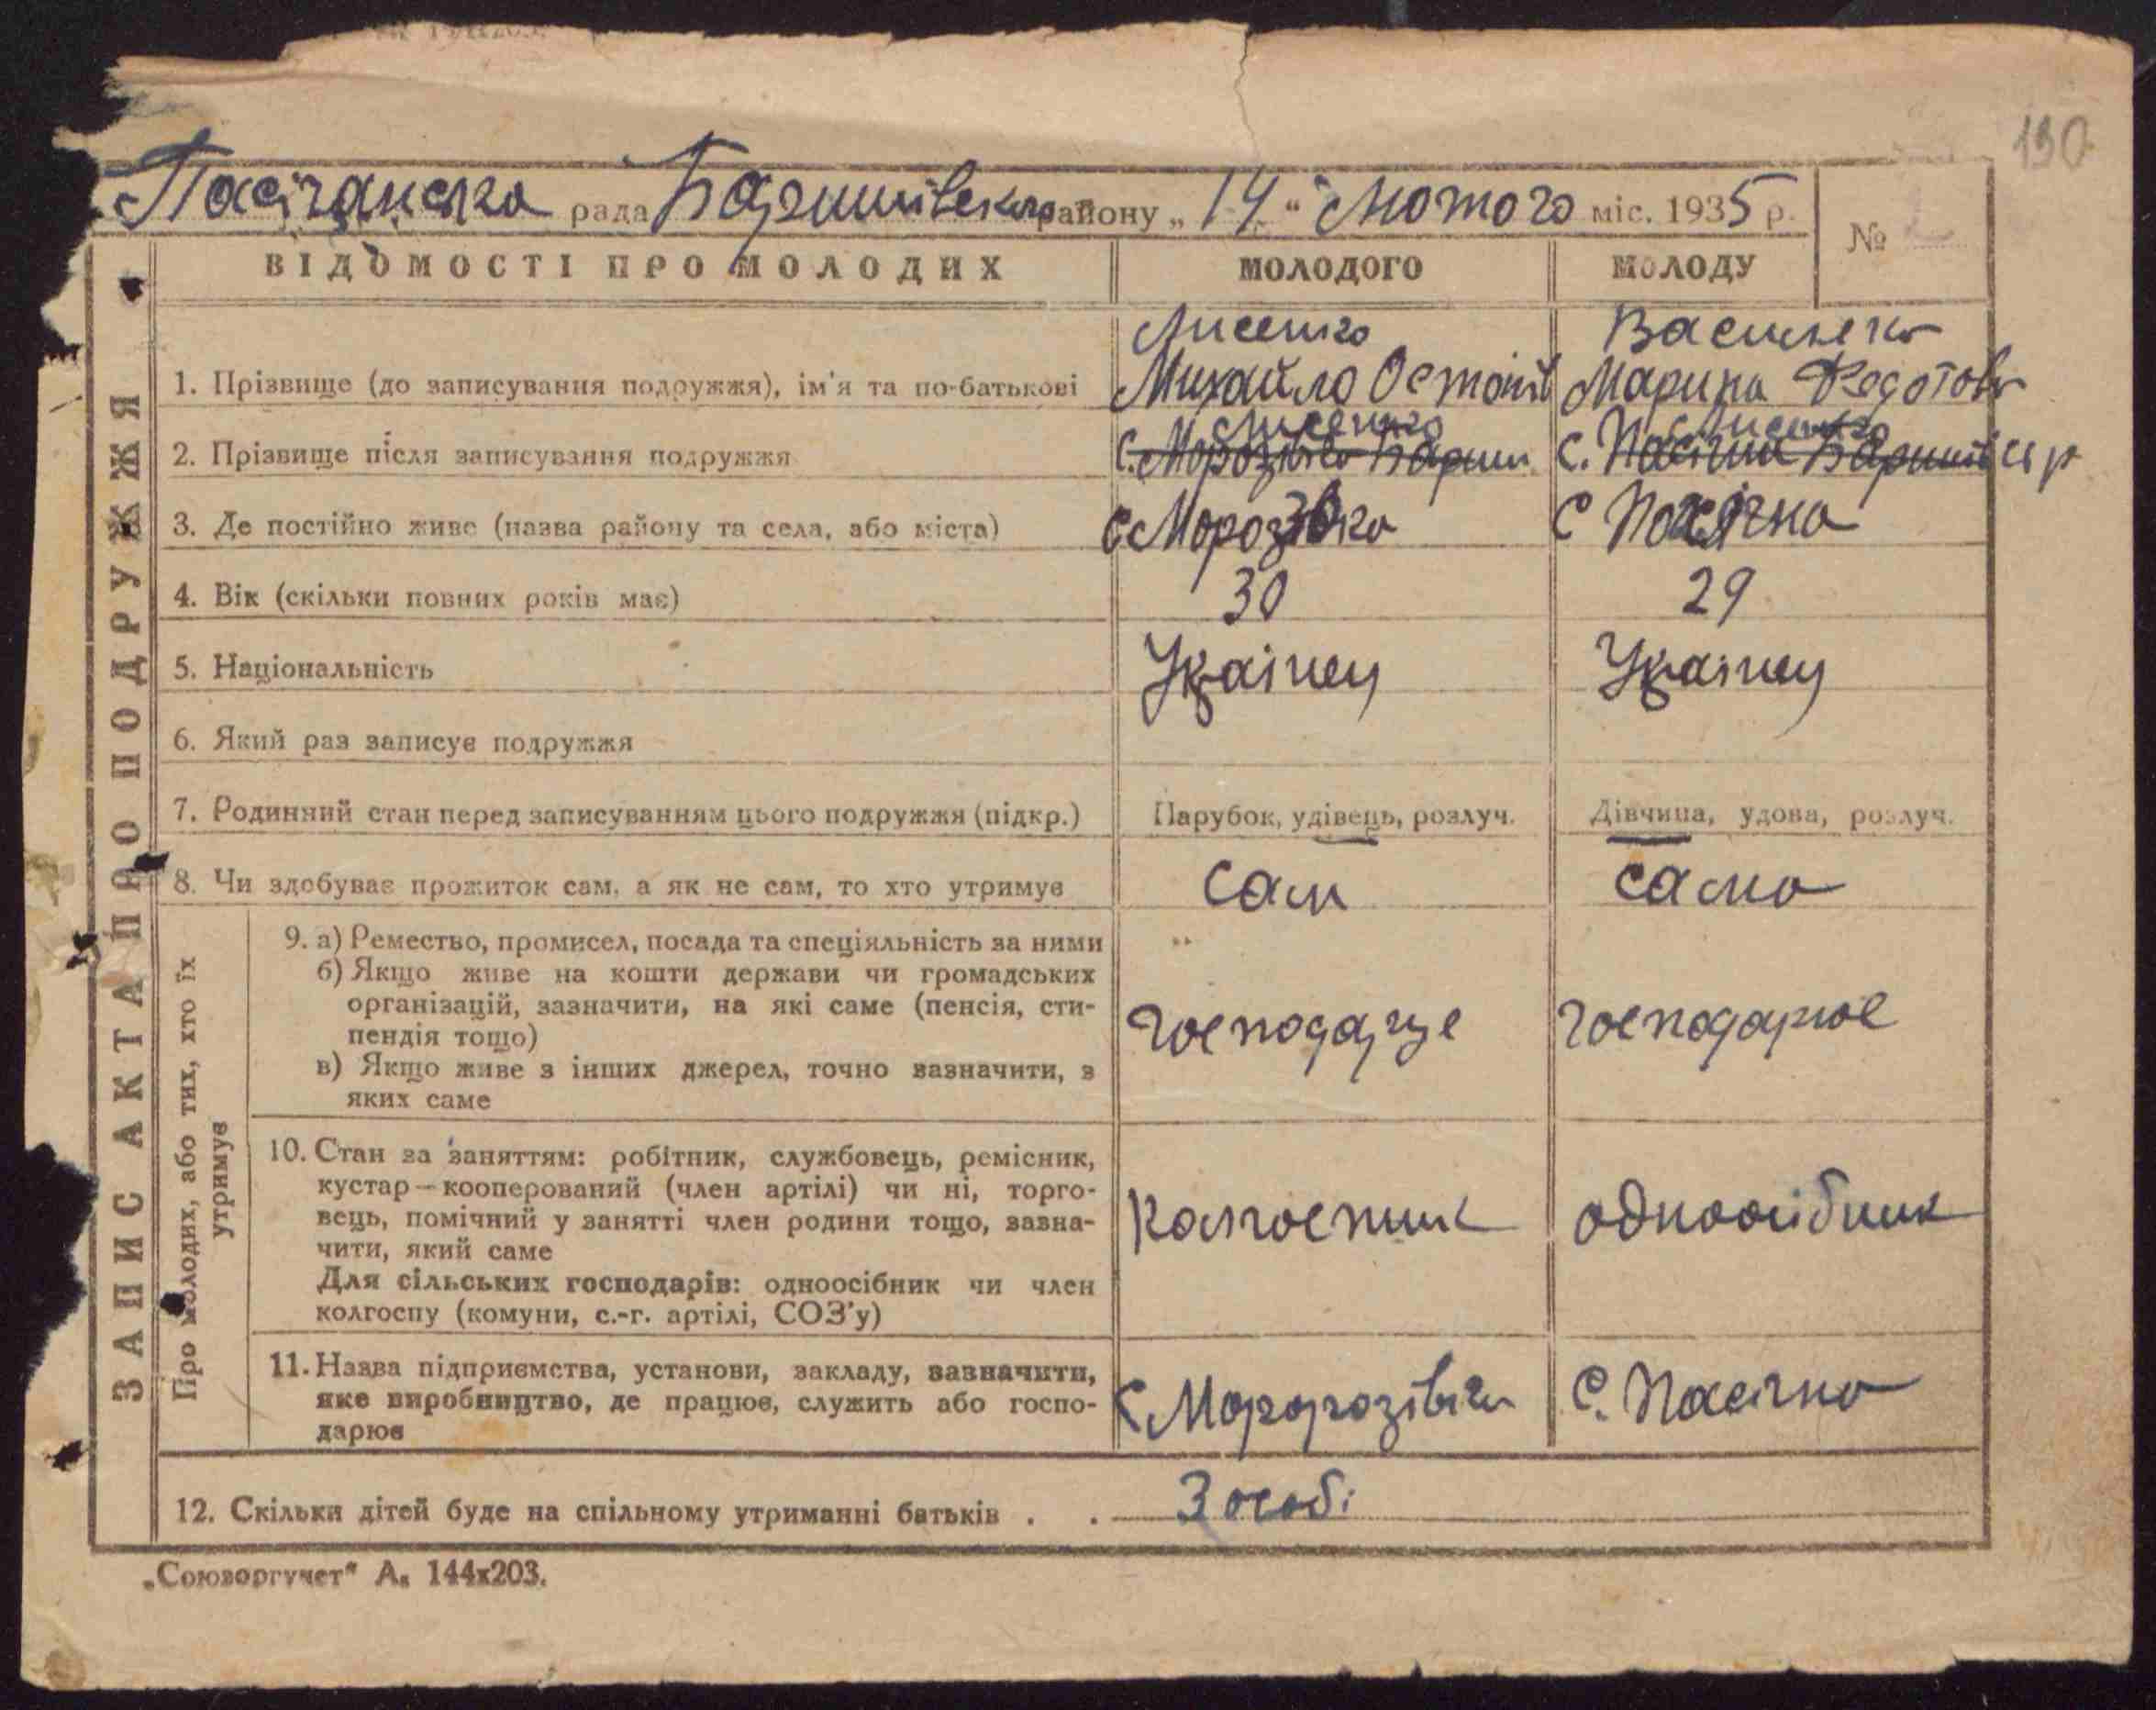 190
Пасічанська рада Баришівського району „ 14 " Лютого міс. 1935 р.
№
ВІДОМОСТІ ПРО МОЛОДИХ МОЛОДОГО МОЛОДУ
ЗАПИС АКТА ПРО ПОДРУЖЖЯ
Лисенко Василенко
1. Прізвище (до записування подружжя), ім'я та по-батькові Михайло Остапів Марина Федотова
Лисенко Лисенко
2. Прізвище після записування подружжя С. Морозівка Бариш С. Пасічна Баришівс р
3. Де постійно живе (назва району та села, або міста) С Морозівка С Пасічна
4. Вік (скільки повних років має) 30 29
5. Національність Украінец Украінец
6. Який раз записує подружжя
7. Родинний стан перед записуванням цього подружжя (підкр.) Парубок, удівець, розлуч. Дівчина, удова, розлуч.
8. Чи здобуває прожиток сам, а як не сам, то хто утримує сам сама
Про молодих, або тих, хто їх утримує
9. а) Ремество, промисел, посада та спеціяльність за ними
б) Якщо живе на кошти держави чи громадських
організацій, зазначити, на які саме (пенсія, сти-
пендія тощо)
в) Якщо живе з інших джерел, точно зазначити, з
яких саме
господарує господарює
10. Стан за заняттям: робітник, службовець, ремісник,
кустар—кооперований (член артілі) чи ні, торго-
вець, помічний у занятті член родини тощо, зазна-
чити, який саме
Для сільських господарів: одноосібник чи член
колгоспу (комуни, с.-г. артілі, СОЗ'у)
Колгоспник одноосібник
11. Назва підприємства, установи, закладу, зазначити,
яке виробництво, де працює, служить або госпо-
дарює
С Моророзівка С. Пасічна
12. Скільки дітей буде на спільному утриманні батьків . . 3 особі
„Союзоргучет" А₆ 144х203.